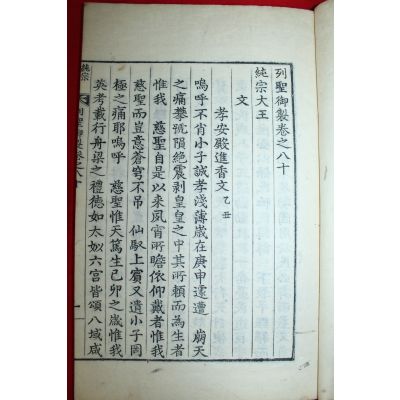 列聖御製卷之八十
純宗大王
文
孝安殿進香文 乙丑
嗚呼不肖小子誠孝淺薄歲在庚申遽遭 崩天
之痛攀號隕絕震剥皇皇之中其所賴而為生者
惟我 慈聖自是以來夙宵所瞻依仰戴者惟我
慈聖而豈意蒼穹不吊 仙馭上賓又遺小子罔
極之痛耶嗚呼 慈聖惟天篤生己卯之歲惟我
英考載行舟梁之禮德如太姒六宮皆頌八域咸
純宗 列聖御製卷之八十 一